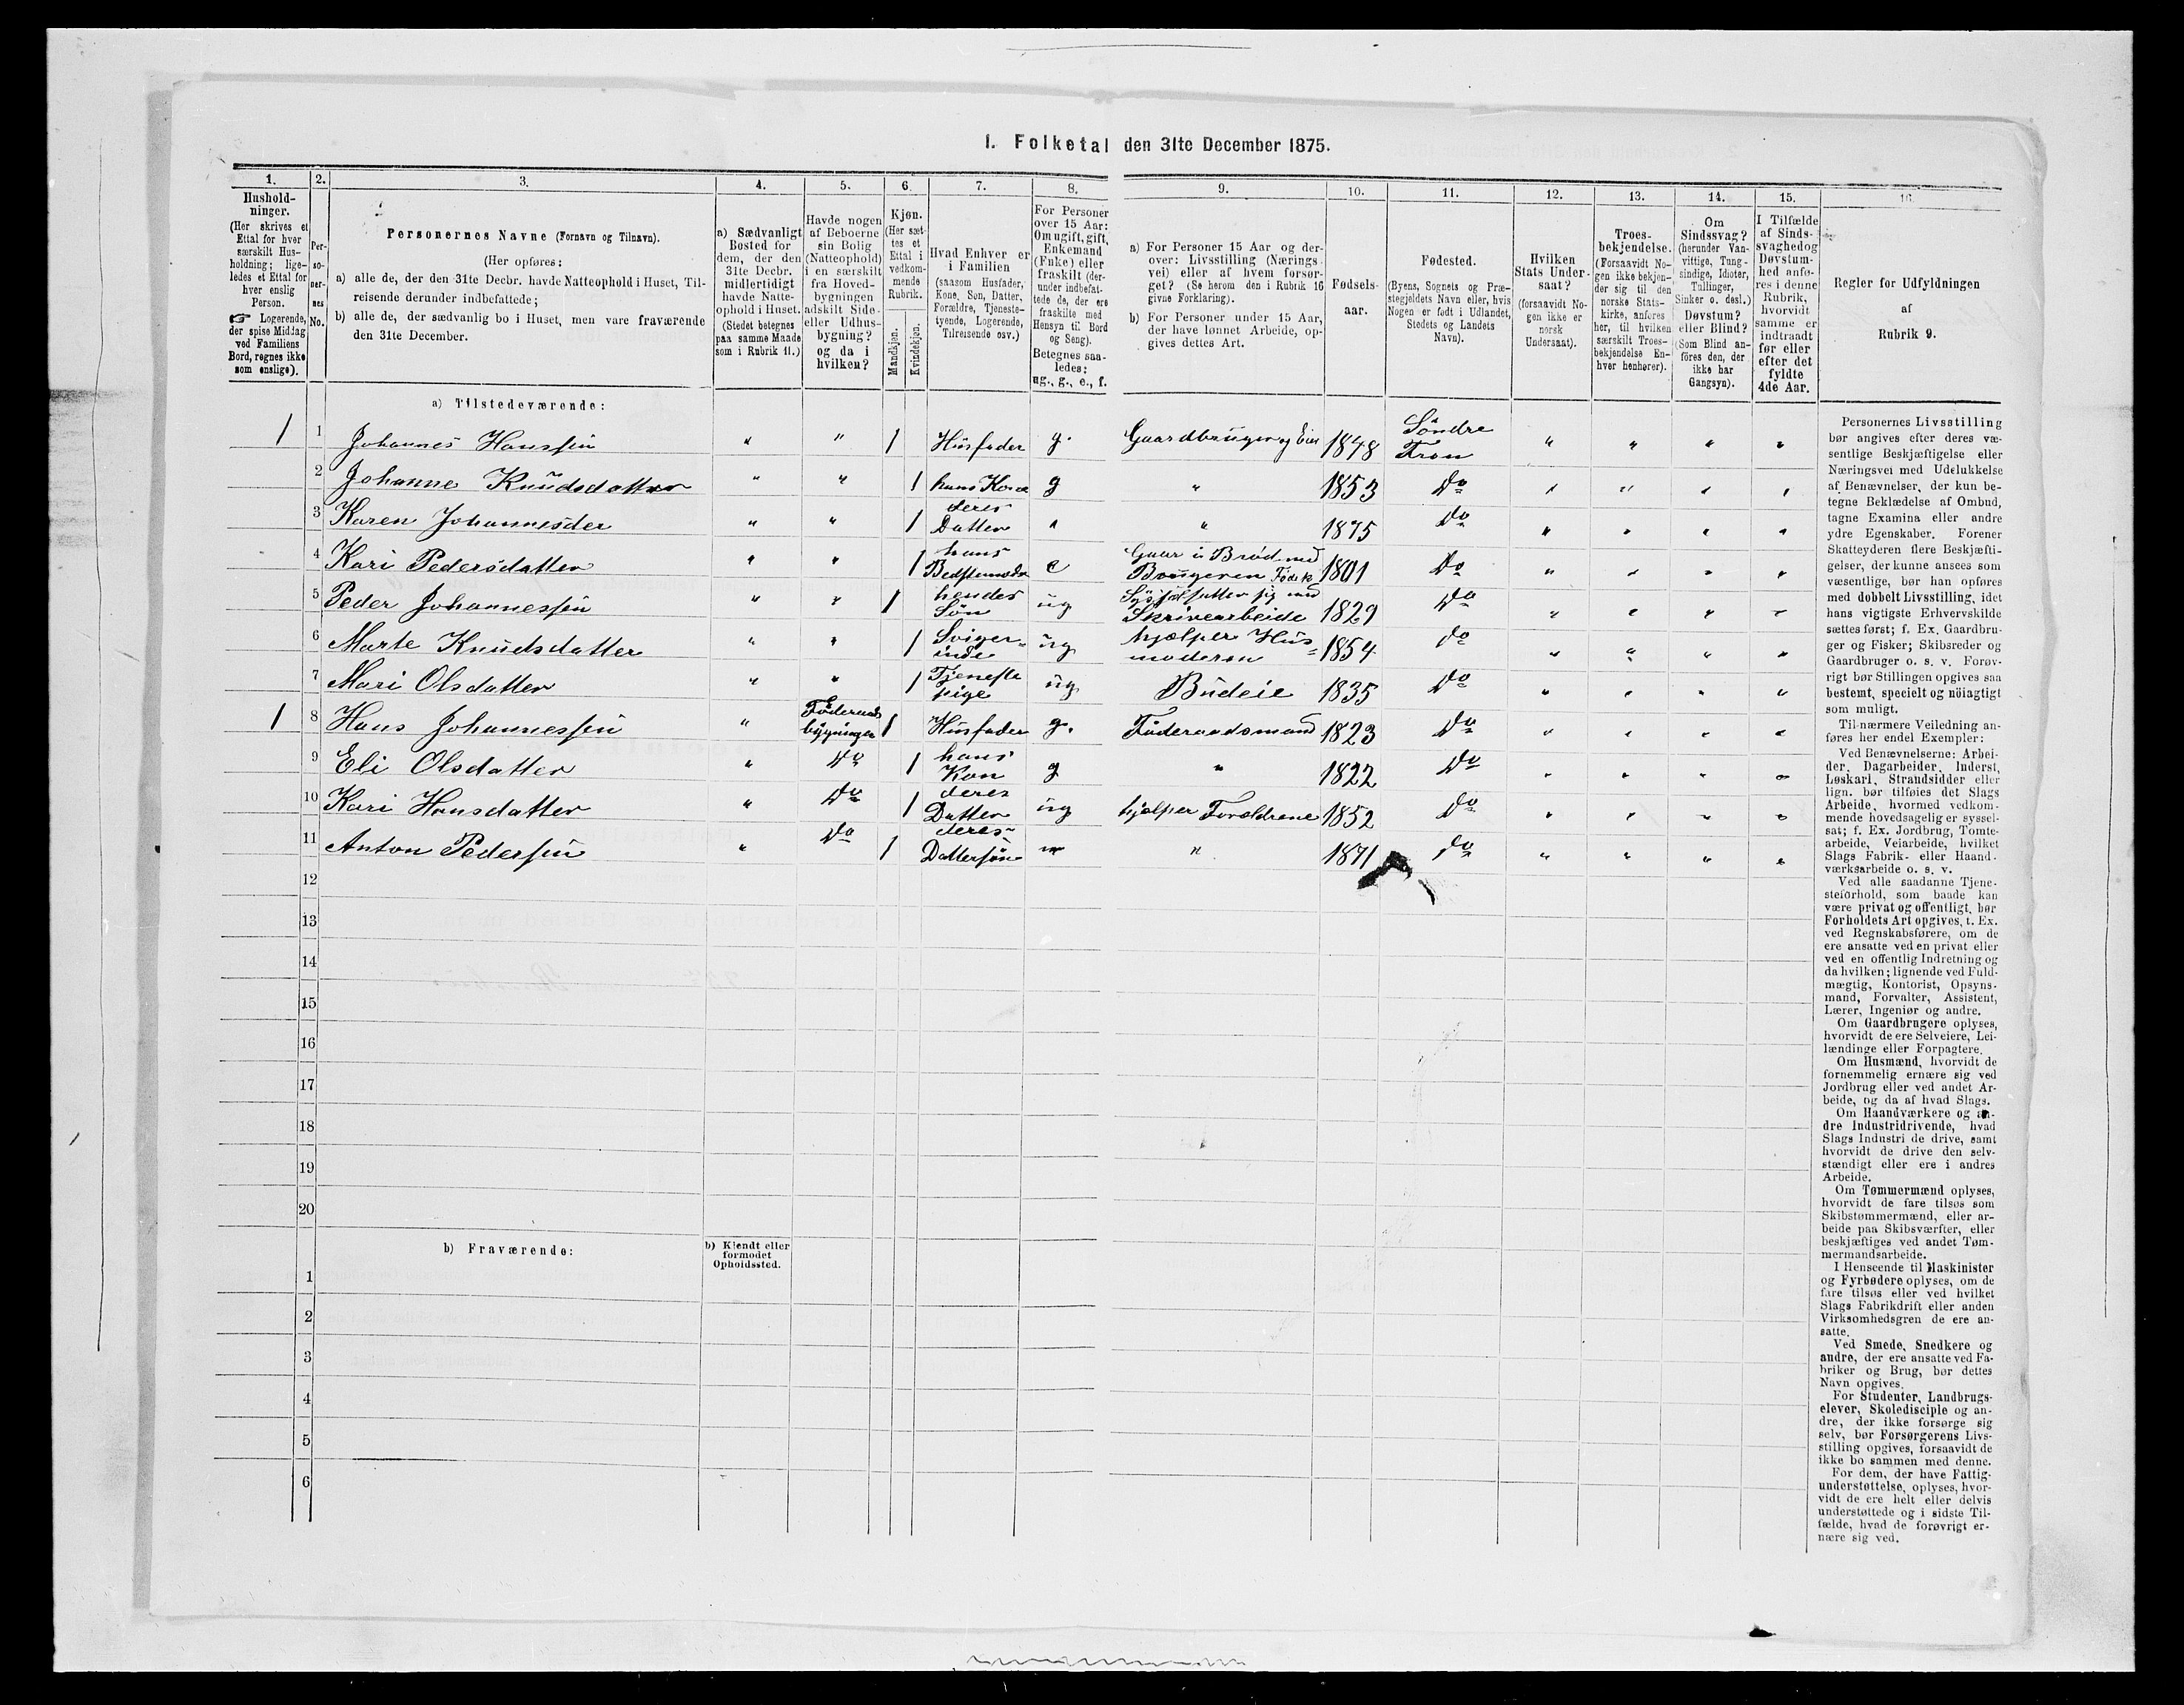 I. Folketal den 31te December 1875.
1. 2. 3. 4. 5. 6. 7. 8. 9. 10. 11. 12. 13. 14. 15. 16.
Hushold-
ninger.
(Her skrives et
Ettal for hver
særskilt Hus-
holdning; lige-
ledes et Ettal for
hver enslig
Person.
☞ Logerende,
der spise Middag
ved Familiens
Bord, regnes ikke
som enslige).
Per-
so-
ner-
nes
No.
Personernes Navne (Fornavn og Tilnavn).
(Her opføres:
a) alle de, der den 31te Decbr. havde Natteophold i Huset, Til-
reisende derunder indbefattede;
b) alle de, der sædvanlig bo i Huset, men vare fraværende
den 31te December.
a) Sædvanligt
Bosted for
dem, der den
31te Decbr.
midlertidigt
havde Natte-
ophold i Huset.
(Stedet betegnes
paa samme Maade
som i Rubrik 11.)
Havde nogen
af Beboerne
sin Bolig
(Natteophold)
i en særskilt
fra Hoved-
bygningen
adskilt Side-
eller Udhus-
bygning?
og da i
hvilken?
Kjøn.
(Her sæt-
tes et
Ettal i
vedkom-
mende
Rubrik.
Mandkjøn.
Kvindekjøn.
Hvad Enhver er
i Familien
(saasom Husfader,
Kone, Søn, Datter,
Forældre, Tjeneste-
tyende, Logerende,
Tilreisende osv.)
For Personer
over 15 Aar:
Om ugift, gift,
Enkemand
(Enke) eller
fraskilt (der-
under indbefat-
tede de, der ere
fraskilte med
Hensyn til Bord
og Seng).
Betegnes saa-
ledes:
ug., g., e., f.
a) For Personer 15 Aar og der-
over: Livsstilling (Nærings-
vei) eller af hvem forsør-
get? (Se herom den i Rubrik 16
givne Forklaring).
b) For Personer under 15 Aar,
der have lønnet Arbeide, op-
gives dettes Art.
Fødsels-
aar.
Fødested.
(Byens, Sognets og Præ-
stegjeldets Navn eller, hvis
Nogen er født i Udlandet,
Stedets og Landets
Navn).
Hvilken
Stats Under-
saat?
(forsaavidt No-
gen ikke er
norsk
Undersaat).
Troes-
bekjendelse.
(Forsaavidt No-
gen ikke bekjen-
der sig til den
norske Stats-
kirke, anføres
her, til hvilken
særskilt Troes-
bekjendelse En-
hver henhører).
Om
Sindssvag?
(herunder Van-
vittige, Tung-
sindige, Idioter,
Tullinger,
Sinker o. desl.)
Døvstum?
eller Blind?
(Som Blind an-
føres den, der
ikke har
Gangsyn).
I Tilfælde
af Sinds-
svaghedog
Døvstum-
hed anfø-
res i denne
Rubrik,
hvorvidt
samme er
indtraadt
før eller
efter det
fyldte
4de Aar.
Regler for Udfyldningen
af
Rubrik 9.
a) Tilstedeværende:
1 1 Johannes Hanssen " " 1 Husfader g. Gaardbruger og Eier 1848 Söndre Fron " " " "
2 Johanne Knudsdatter " " 1 hans Kone g " 1853 Do " " " "
3 Karen Johannesder " " 1 deres Datter " " 1875 Do " " " "
4 Kari Pedersdatter " " 1 hans Bedstemoder e Brugeren 1801 Do " " " "
5 Peder Johannessen " " 1 hendes Sön ug Skrivearbeide 1829 Do " " " "
6 Marte Knudsdatter " " 1 Sviger- inde ug hjælper Hus- moderen 1854 Do " " " "
7 Mari Olsdatter " " 1 Tjeneste pige ug Budeie 1835 Do " " " "
1 8 Hans Johannessen " Föderaads bygningen 1 Husfader g. Föderaadsmand 1823 Do " " " "
9 Eli Olsdatter " Do 1 hans Kon g " 1822 Do " " " "
10 Kari Hansdatter " Do 1 deres Datter ug hjælper Forældrene 1852 Do " " " "
11 Anton Pedersen " Do 1 deres Dattersön " " 1871 Do " " " "
12
13
14
15
16
17
18
19
20
b) Fraværende:
b) Kjendt eller
formodet
Opholdssted.
1
2
3
4
5
6
Personernes Livsstilling
bør angives efter deres væ-
sentlige Beskjæftigelse eller
Næringsvei med Udelukkelse
af Benævnelser, der kun be-
tegne Beklædelse af Ombud,
tagne Examina eller andre
ydre Egenskaber. Forener
Skatteyderen flere Beskjæfti-
gelser, der kunne ansees som
væsentlige, bør han opføres
med dobbelt Livsstilling, idet
hans vigtigste Erhvervskilde
sættes først; f. Ex. Gaardbru-
ger og Fisker; Skibsreder og
Gaardbruger o. s. v. Forøv-
rigt bør Stillingen opgives saa
bestemt, specielt og nöiagtigt
som muligt.
Til nærmere Veiledning an-
føres her endel Exempler:
Ved Benævnelserne: Arbei-
der, Dagarbeider, Inderst,
Løskarl, Strandsidder eller
lign. bør tilføies det Slags
Arbeide, hvormed vedkom-
mende hovedsagelig er syssel-
sat; f. Ex. Jordbrug, Tomte-
arbeide, Veiarbeide, hvilket
Slags Fabrik- eller Haand-
værksarbeide o. s. v.
Ved alle saadanne Tjene-
steforhold, som baade kan
være privat og offentligt, bør
Forholdets Art opgives, t. Ex.
ved Regnskabsførere, om de
ere ansatte ved en privat eller
ved en offentlig Indretning og
da hvilken; lignende ved Fuld-
mægtig, Kontorist, Opsyns-
mand, Forvalter, Assistent,
Lærer, Ingeniør og andre.
Om Gaardbrugere oplyses,
hvorvidt de ere Selveiere, Lei-
lændinge eller Forpagtere.
Om Husmænd, hvorvidt de
fornemmelig ernære sig ved
Jordbrug eller ved andet Ar-
beide, og da af hvad Slags.
Om Haandværkere og an-
dre Industridrivende, hvad
Slags Industri de drive, samt
hvorvidt de drive den selv-
stændigt eller ere i andres
Arbeide.
Om Tømmermænd oplyses,
hvorvidt de fare tilsøs som
Skibstømmermænd, eller ar-
beide paa Skibsværfter, eller
beskjæftiges ved andet Tøm-
mermandsarbeide.
I Henseende til Maskinister
og Fyrbødere oplyses, om de
fare tilsøs eller ved hvilket
Slags Fabrikdrift eller anden
Virksomhedsgren de ere an-
satte.
Ved Smede, Snedkere og
andre, der ere ansatte ved Fa-
briker og Brug, bør dettes
Navn opgives.
For Studenter, Landbrugs-
elever, Skoledisciple og an-
dre, der ikke forsørge sig
selv, bør Forsørgerens Livs-
stilling opgives, forsaavidt de
ikke bo sammen med denne.
For dem, der have Fattig-
understøttelse, oplyses, hvor-
vidt de ere helt eller delvis
understøttede og i sidste Til-
fælde, hvad de forøvrigt er-
nære sig ved.